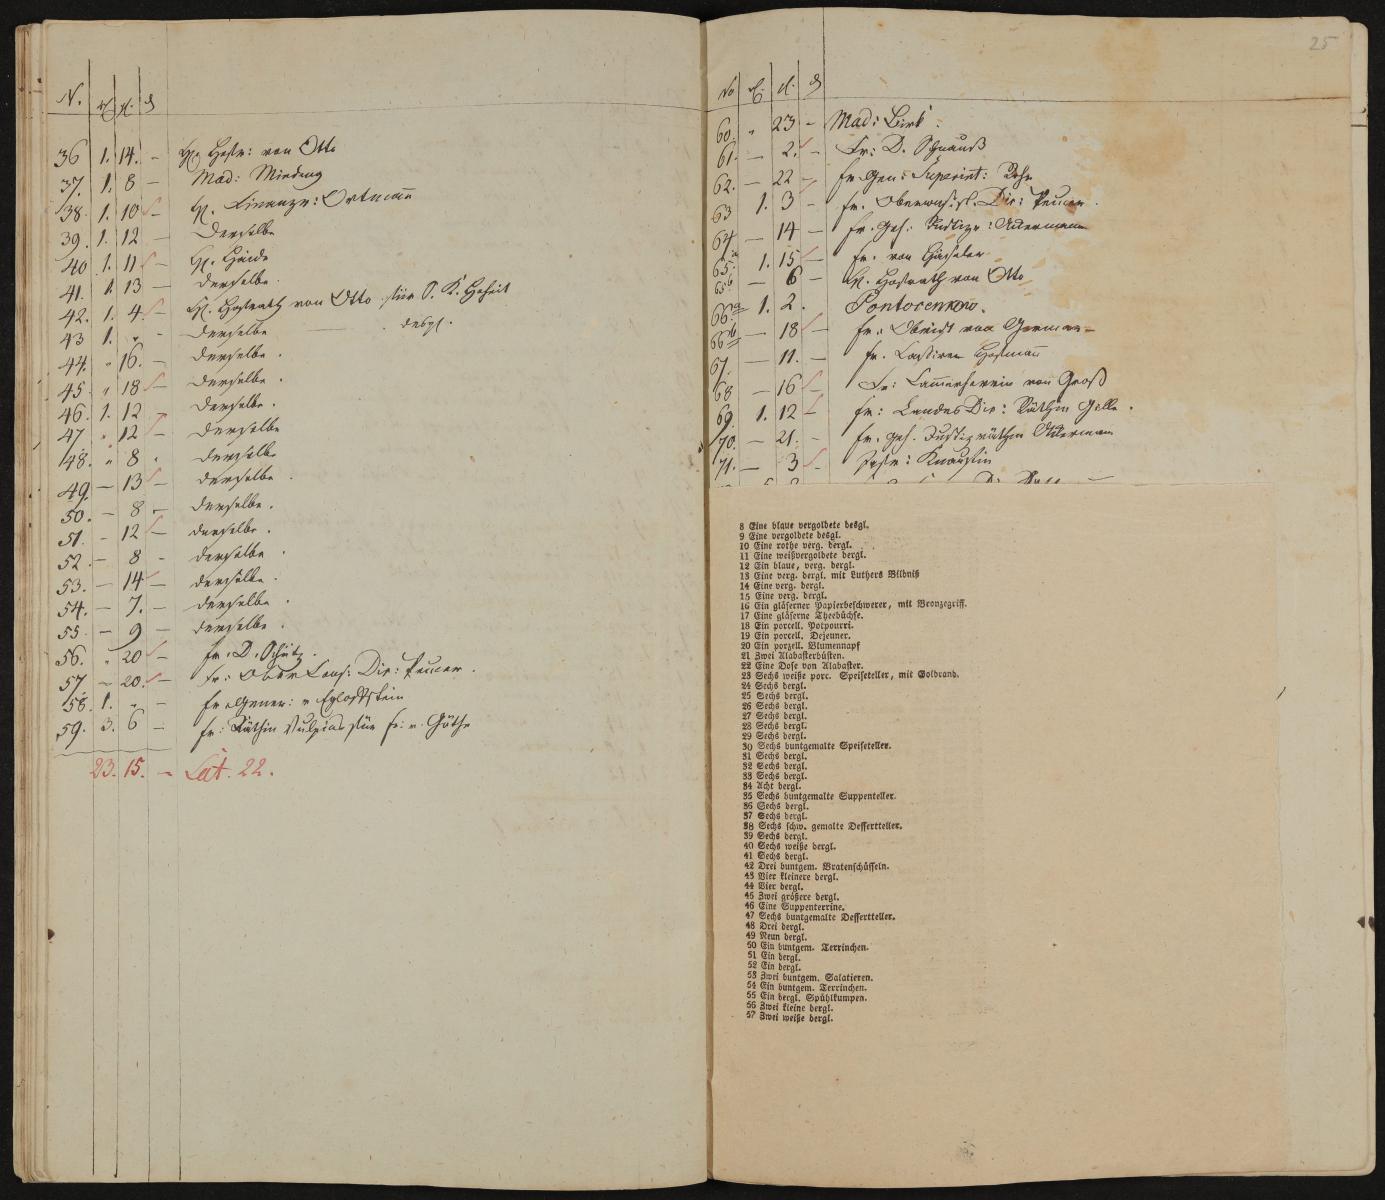 N.
36 1. 14. – von Otto
37. 1. 8 – Mad:
38. 1. 10 – H. Finanzr: Ortmann
39. 1. 12 – Derselbe
40 1. 11 –
41. 1. 13 – derselbe.
42. 1. 4. – H. Hofrath von Otto für S. K. Hoheit
43 1. " - derselbe — desgl.
44. " 16. – derselbe.
45. " 18 – derselbe.
46. 1. 12 derselbe.
47 " 12 – derselbe
48. " 8 " derselbe
49. – 13 – derselbe.
50. – 8 – derselbe.
51. – 12 – derselbe.
52. – 8 - derselbe.
53. – 14 – derselbe.
54. – 7. – derselbe.
55. – 9 – derselbe.
56. " 20 – fr. D. Schütz.
57 – 20. – Fr: Ober Cons: Dir: Peucer.
58. 1. " – fr. Gener: v Egloffstein
59. 3. 6 – fr: Räthin Vulpius für fr: v. Göthe
23. 15. – Lat. 22.
25
No
60. " 23 – Mad: Birk
61. – 2. – Fr: D. Schnauß
62. – 22 – fr Gen: Superint:
63 1. 3 – fr. Dir: Peucer.
64 – 14 – fr. Geh: Ackermann
65a 1. 15 – fr. von
65b – 6 – H. Hofrath von Otto
66a 1. 2.
66b – 18 – fr. Obrist von Germar
67. – 11. – fr. Hofmann
68 – 16 – Fr: Kammerherrin von Groß
69. 1. 12 – fr: Landes Dir: Räthin Gille.
70. – 21. – fr. Geh. Justizräthin Ackermann
71. – 3 –
8 Eine blaue vergoldete desgl.
9 Eine vergoldete desgl.
10 Eine rothe verg. dergl.
11 Eine weißvergoldete dergl.
12 Ein blaue, verg. dergl.
13 Eine verg. dergl. mit Luthers Bildniß
14 Eine verg. dergl.
15 Eine verg. dergl.
16 Ein gläserner Papierbeschwerer, mit Bronzegriff.
17 Eine gläserne Theebüchse.
18 Ein porcell. Potpourri.
19 Ein porcell. Dejeuner.
20 Ein porzell. Blumennapf
21 Zwei Alabasterbüsten.
22 Eine Dose von Alabaster.
23 Sechs weiße porc. Speiseteller, mit Goldrand.
24 Sechs dergl.
25 Sechs dergl.
26 Sechs dergl.
27 Sechs dergl.
28 Sechs dergl.
29 Sechs dergl.
30 Sechs buntgemalte Speiseteller.
31 Sechs dergl.
32 Sechs dergl.
33 Sechs dergl.
34 Acht dergl.
35 Sechs buntgemalte Suppenteller.
36 Sechs dergl.
37 Sechs dergl.
38 Sechs schw. gemalte Dessertteller.
39 Sechs dergl.
40 Sechs weiße dergl.
41 Sechs dergl.
42 Drei buntgem. Bratenschüsseln.
43 Vier kleinere dergl.
44 Vier dergl.
45 Zwei größere dergl.
46 Eine Suppenterrine.
47 Sechs buntgemalte Dessertteller.
48 Drei dergl.
49 Neun dergl.
50 Ein buntgem. Terrinchen.
51 Ein dergl.
52 Ein dergl.
53 Zwei buntgem. Salatieren.
54 Ein buntgem. Terrinchen.
55 Ein dergl. Spühlkumpen.
56 Zwei kleine dergl.
57 Zwei weiße dergl.